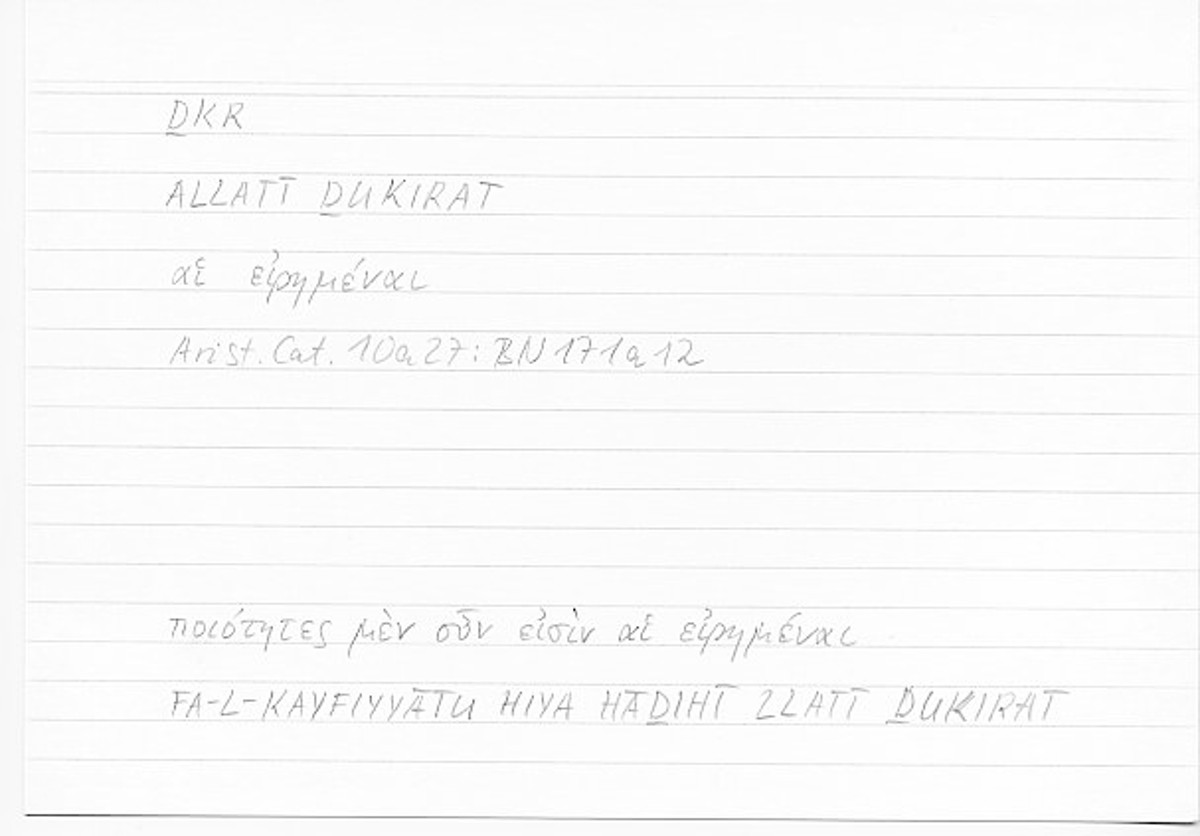 ḎKR
ALLATĪ ḎUKIRAT
αἱ εἰρημέναι
Arist. Cat. 10a27: BN 171a12
ποιότητες μὲν οὖν εἰσὶν αἱ εἰρημέναι
FA-L-KAYFIYYĀTU HIYA HĀḎIHĪ LLATĪ ḎUKIRAT